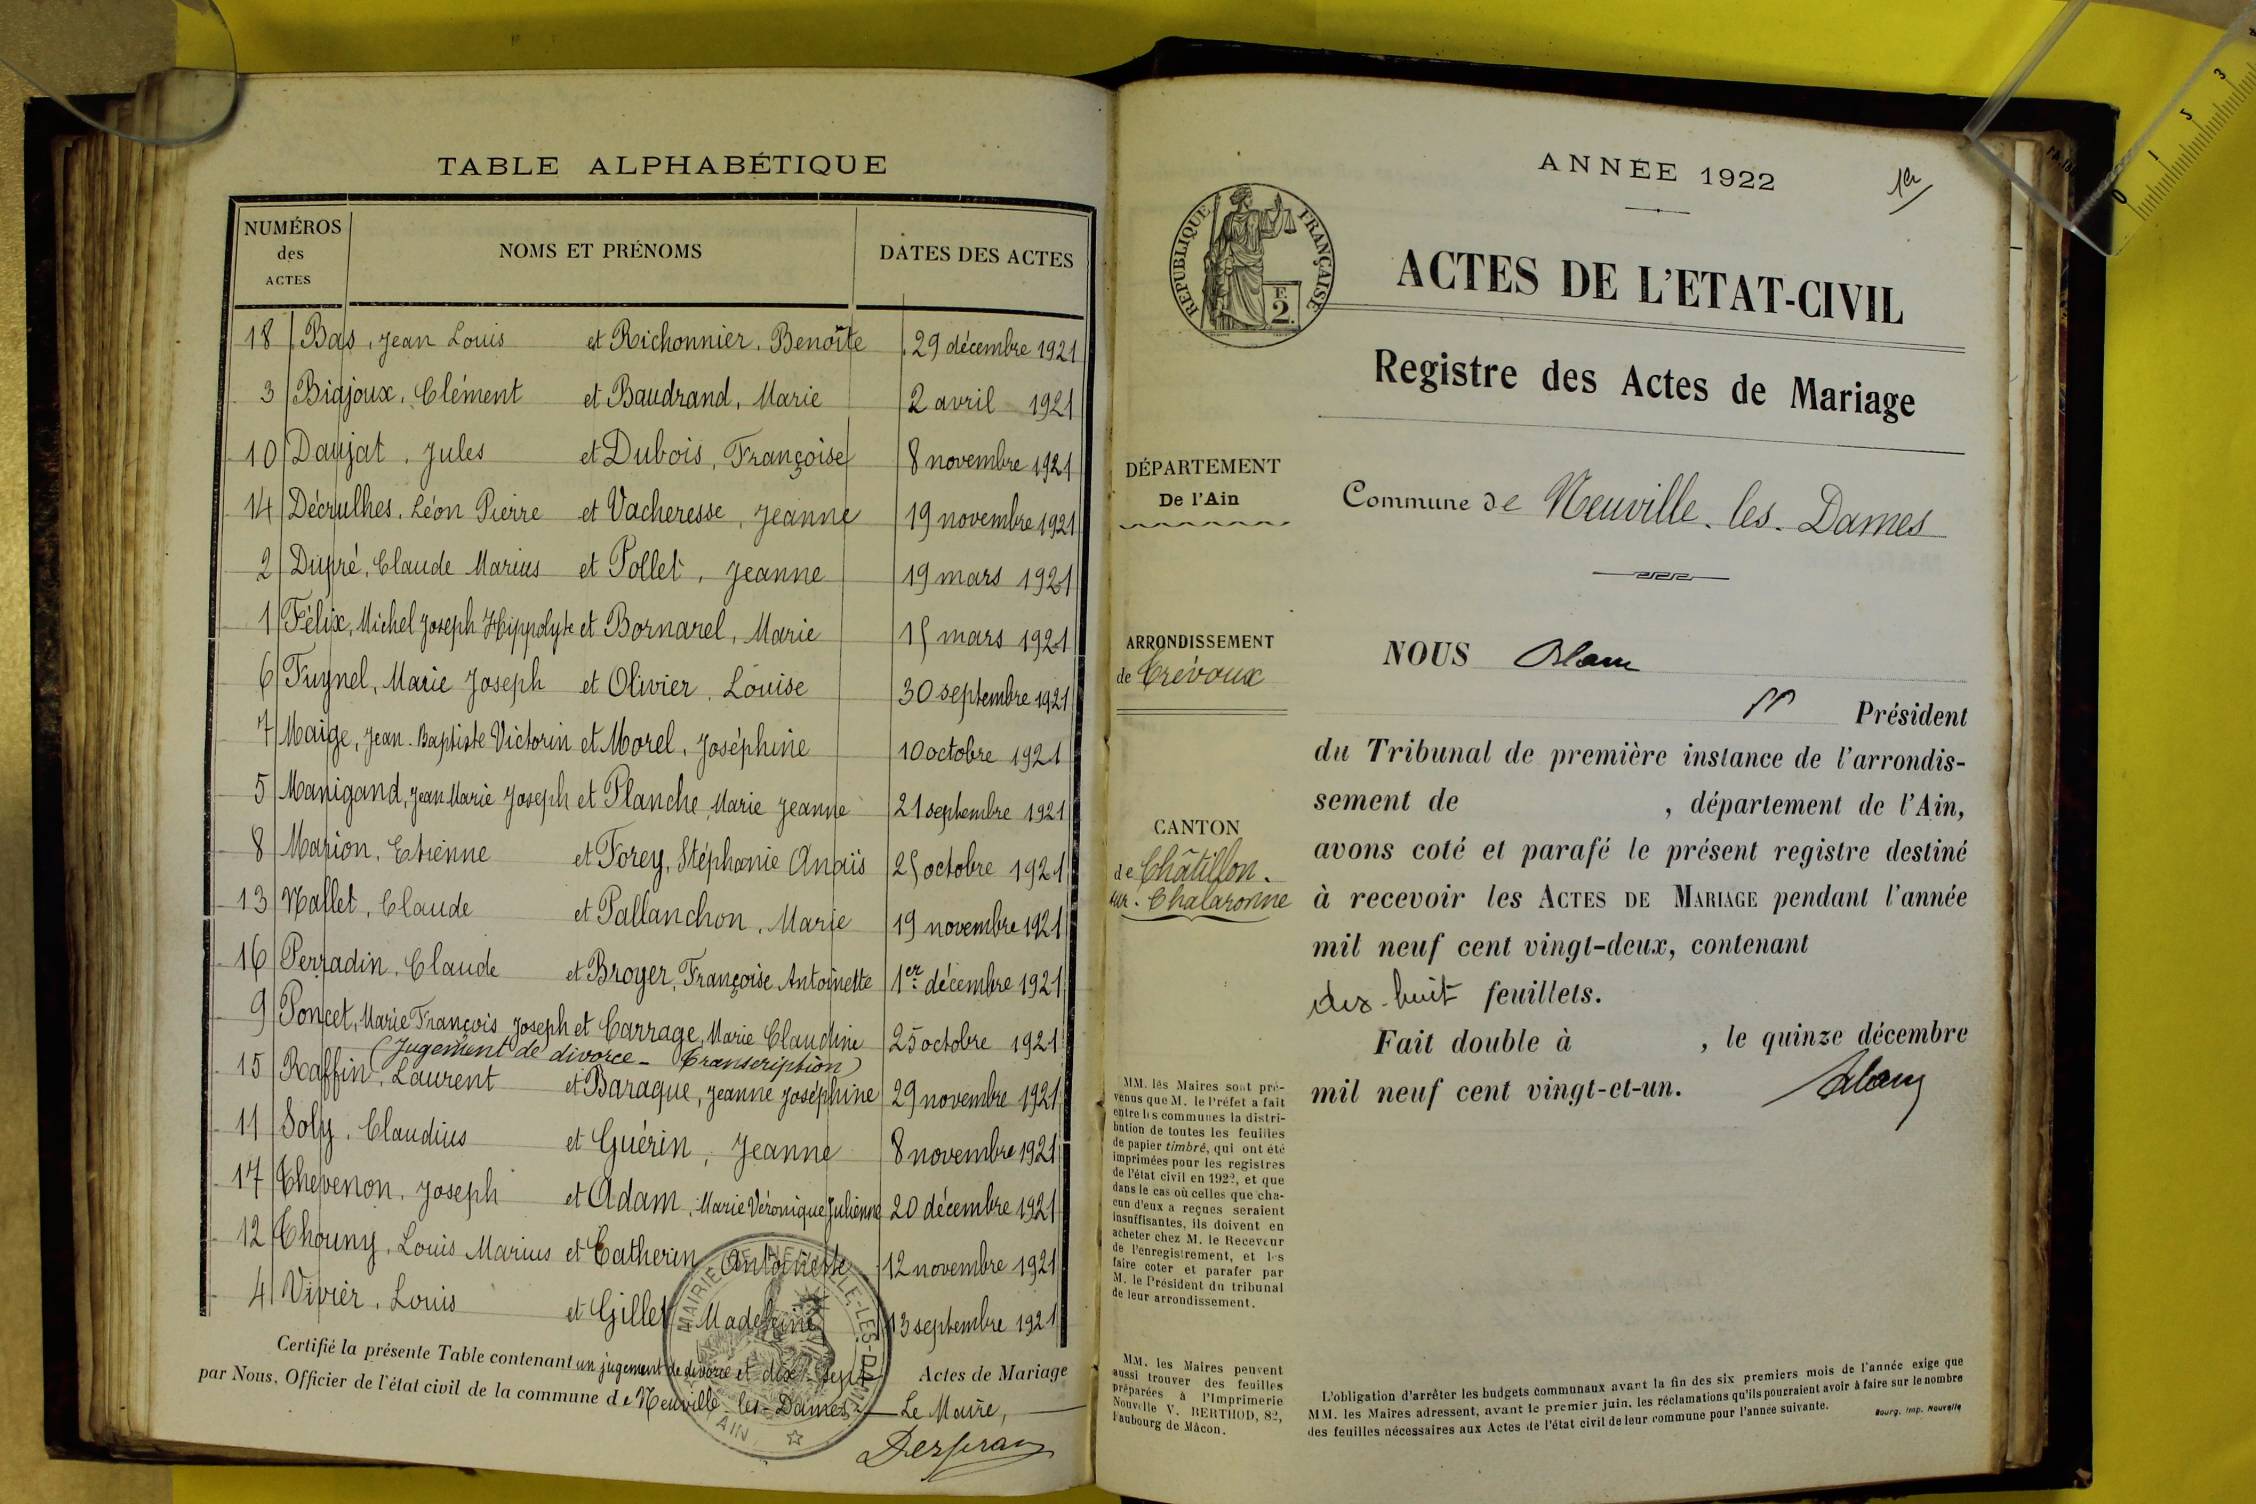 TABLE ALPHABÉTIQUE
NUMÉROS des ACTES NOMS ET PRÉNOMS DATES DES ACTES
18 Bas, Jean Louis et Richonnier, Benoîte 29 décembre 1921
3 Biajoux, Clément et Baudrand, Marie 2 avril 1921
10 Daujat, Jules et Dubois, Françoise 8 novembre 1921
14 Décrulhes, Léon Pierre et Vacheresse, Jeanne 19 novembre 1921
2 Dupré, Claude Marius et Pollet, Jeanne 19 mars 1921
1 Félix, Michel Joseph Hippolyte et Bornarel, Marie 15 mars 1921
6 Fuynel, Marie Joseph et Olivier, Louise 30 septembre 1921
7 Maige, Jean-Baptiste Victorin et Morel, Joséphine 10 octobre 1921
5 Manigand, Jean Marie Joseph et Planche, Marie Jeanne 21 septembre 1921
8 Marion, Etienne et Forey, Stéphanie Anaïs 25 octobre 1921
13 Nallet, Claude et Pallanchon, Marie 19 novembre 1921
16 Perradin, Claude et Broyer, Françoise Antoinette 1er décembre 1921
9 Poncet, Marie François Joseph et Carrage, Marie Claudine 25 octobre 1921
(Jugement de divorce - Transcription)
15 Raffin, Laurent et Baraque, Jeanne Joséphine 29 novembre 1921
11 Soly, Claudius et Guérin, Jeanne 8 novembre 1921
17 Thevenon, Joseph et Adam, Marie Véronique Julienne 20 décembre 1921
12 Thouny, Louis Marius et Catherin Antoinette 12 novembre 1921
4 Vivier, Louis et Gillet Madeleine 13 septembre 1921
Certifié la présente Table contenant un jugement de divorce et dix-sept Actes de Mariage
par Nous, Officier de l'état civil de la commune de Neuville-les-Dames. Le Maire,
MAIRIE DE NEUVILLE-LES-DAMES
AIN
ANNÉE 1922
1er
RÉPUBLIQUE FRANÇAISE
F. 2.
ACTES DE L'ETAT-CIVIL
Registre des Actes de Mariage
DÉPARTEMENT
De l'Ain
Commune de Neuville-les-Dames
ARRONDISSEMENT
de Trévoux
CANTON
de Châtillon-
sur-Chalaronne
NOUS
Président
du Tribunal de première instance de l'arrondis-
sement de , département de l'Ain,
avons coté et parafé le présent registre destiné
à recevoir les ACTES DE MARIAGE pendant l'année
mil neuf cent vingt-deux, contenant
dix-huit feuillets.
Fait double à , le quinze décembre
mil neuf cent vingt-et-un.
MM. les Maires sont pré-
venus que M. le Préfet a fait
entre les communes la distri-
bution de toutes les feuilles
de papier timbré, qui ont été
imprimées pour les registres
de l'état civil en 1922, et que
dans le cas où celles que cha-
cun d'eux a reçues seraient
insuffisantes, ils doivent en
acheter chez M. le Receveur
de l'enregistrement, et les
faire coter et parafer par
M. le Président du tribunal
de leur arrondissement.
MM. les Maires peuvent
aussi trouver des feuilles
préparées à l'Imprimerie
Nouvelle V. BERTHOD, 82,
Faubourg de Mâcon.
L'obligation d'arrêter les budgets communaux avant la fin des six premiers mois de l'année exige que
MM. les Maires adressent, avant le premier juin, les réclamations qu'ils pourraient avoir à faire sur le nombre
des feuilles nécessaires aux Actes de l'état civil de leur commune pour l'année suivante.
Bourg. Imp. Nouvelle